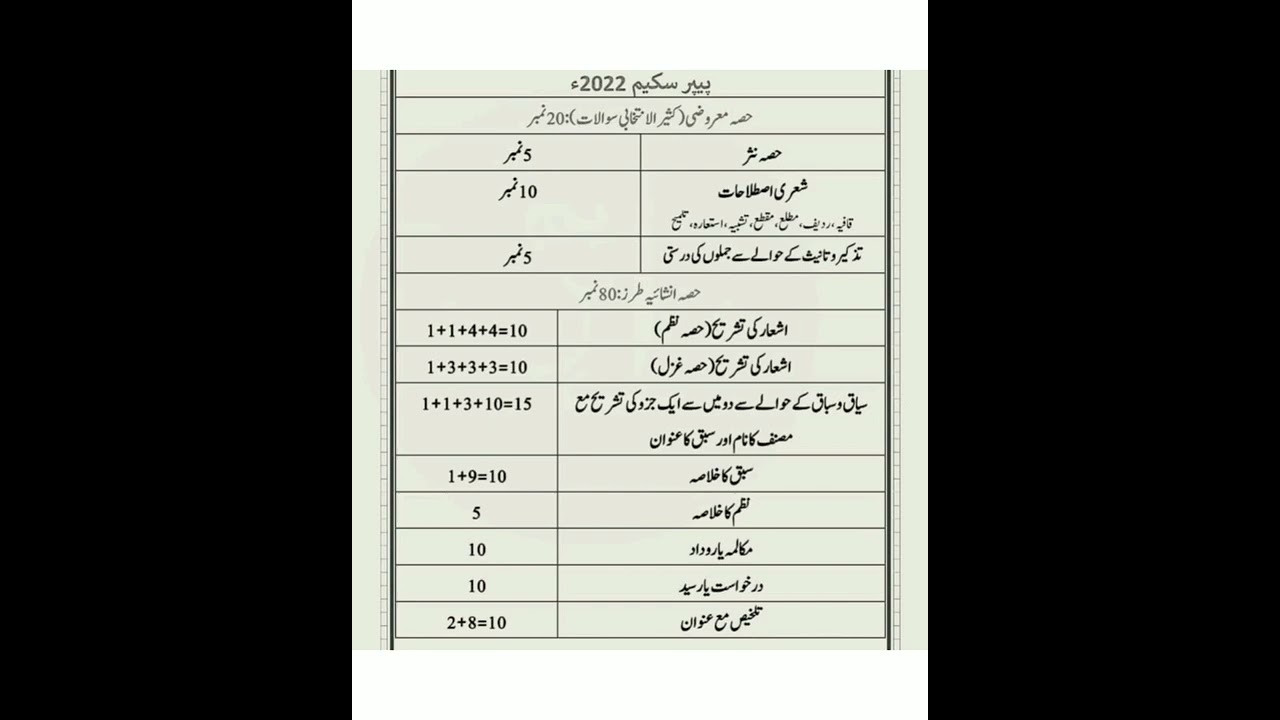 پیپر سکیم 2022ء
حصہ معروضی (کثیر الانتخابی سوالات):20نمبر
حصہ نثر 5نمبر
شعری اصطلاحات 10نمبر
قافیہ، ردیف، مطلع، مقطع، تشبیہ، استعارہ، تلمیح
تذکیر و تانیث کے حوالے سے جملوں کی درستی 5نمبر
حصہ انشائیہ طرز:80نمبر
اشعار کی تشریح(حصہ نظم) 1+1+4+4=10
اشعار کی تشریح(حصہ غزل) 1+3+3+3=10
سیاق و سباق کے حوالے سے دو میں سے ایک جزو کی تشریح مع 1+1+3+10=15
مصنف کا نام اور سبق کا عنوان
سبق کا خلاصہ 1+9=10
نظم کا خلاصہ 5
مکالمہ یا روداد 10
درخواست یا رسید 10
تلخیص مع عنوان 2+8=10